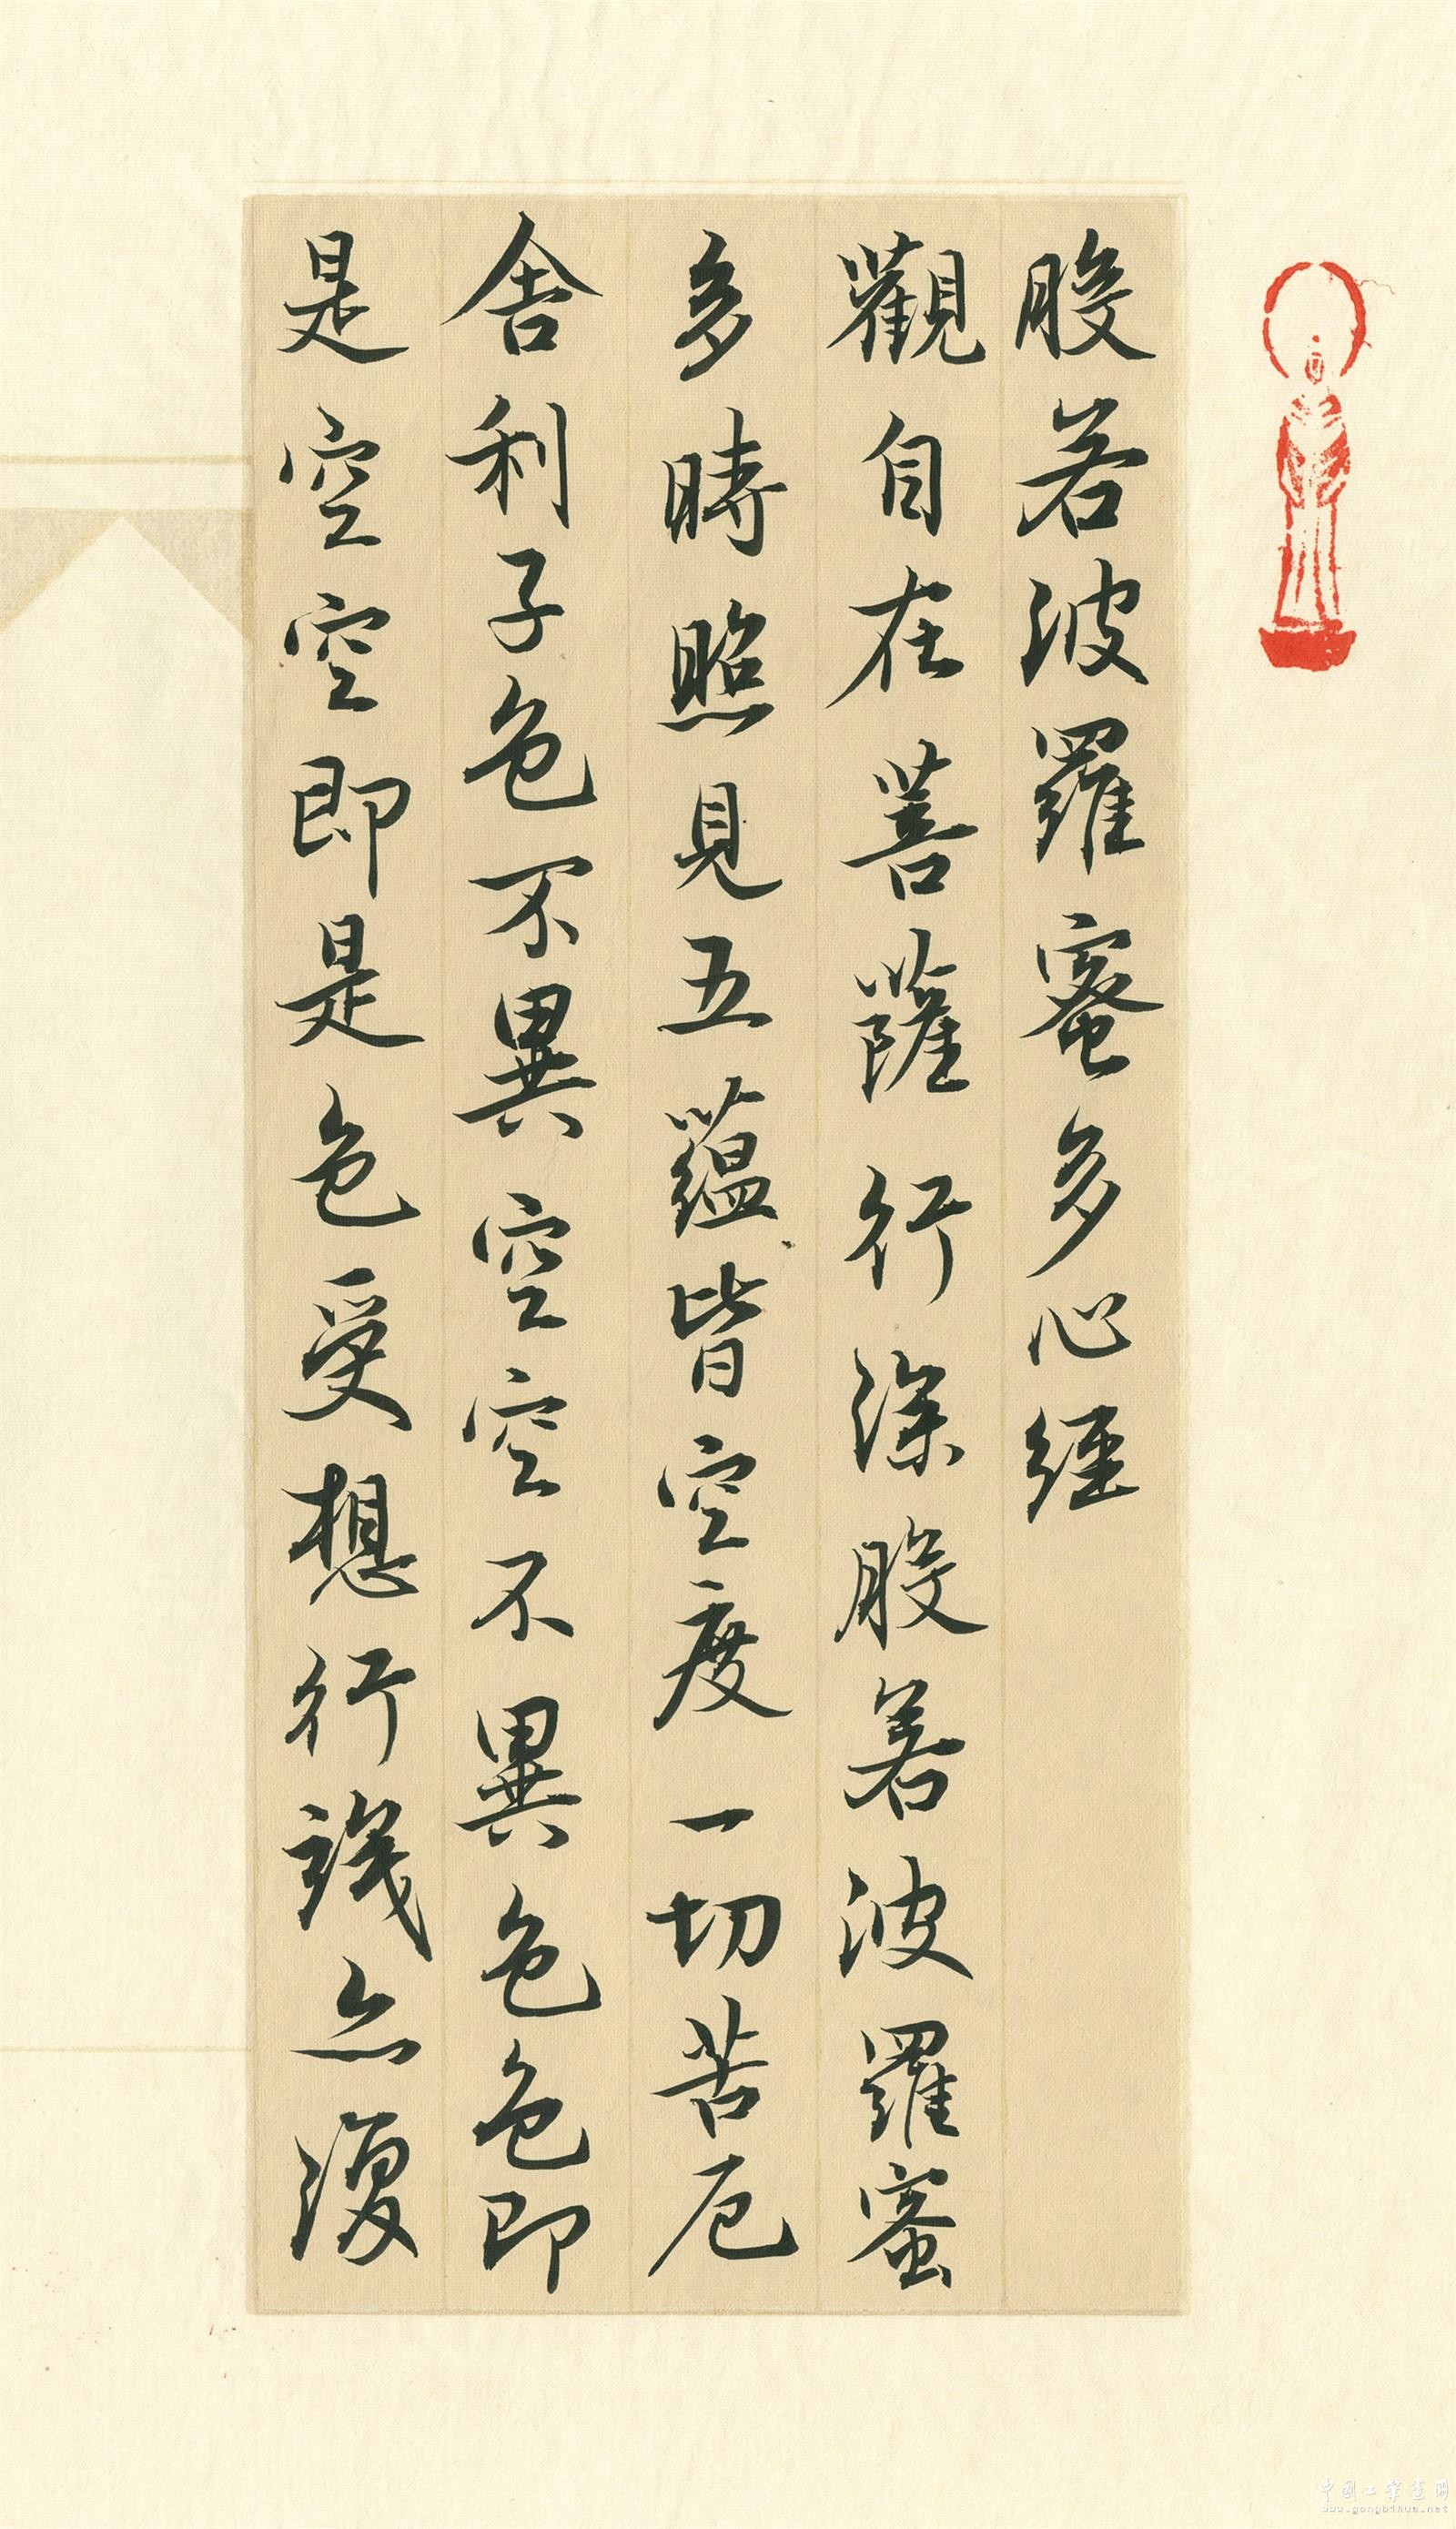 般若波羅蜜多心經
觀自在菩薩行深般若波羅蜜
多時照見五蘊皆空度一切苦厄
舍利子色不異空空不異色色即
是空空即是色受想行識亦復
中国工笔画网
www.gongbihua.net